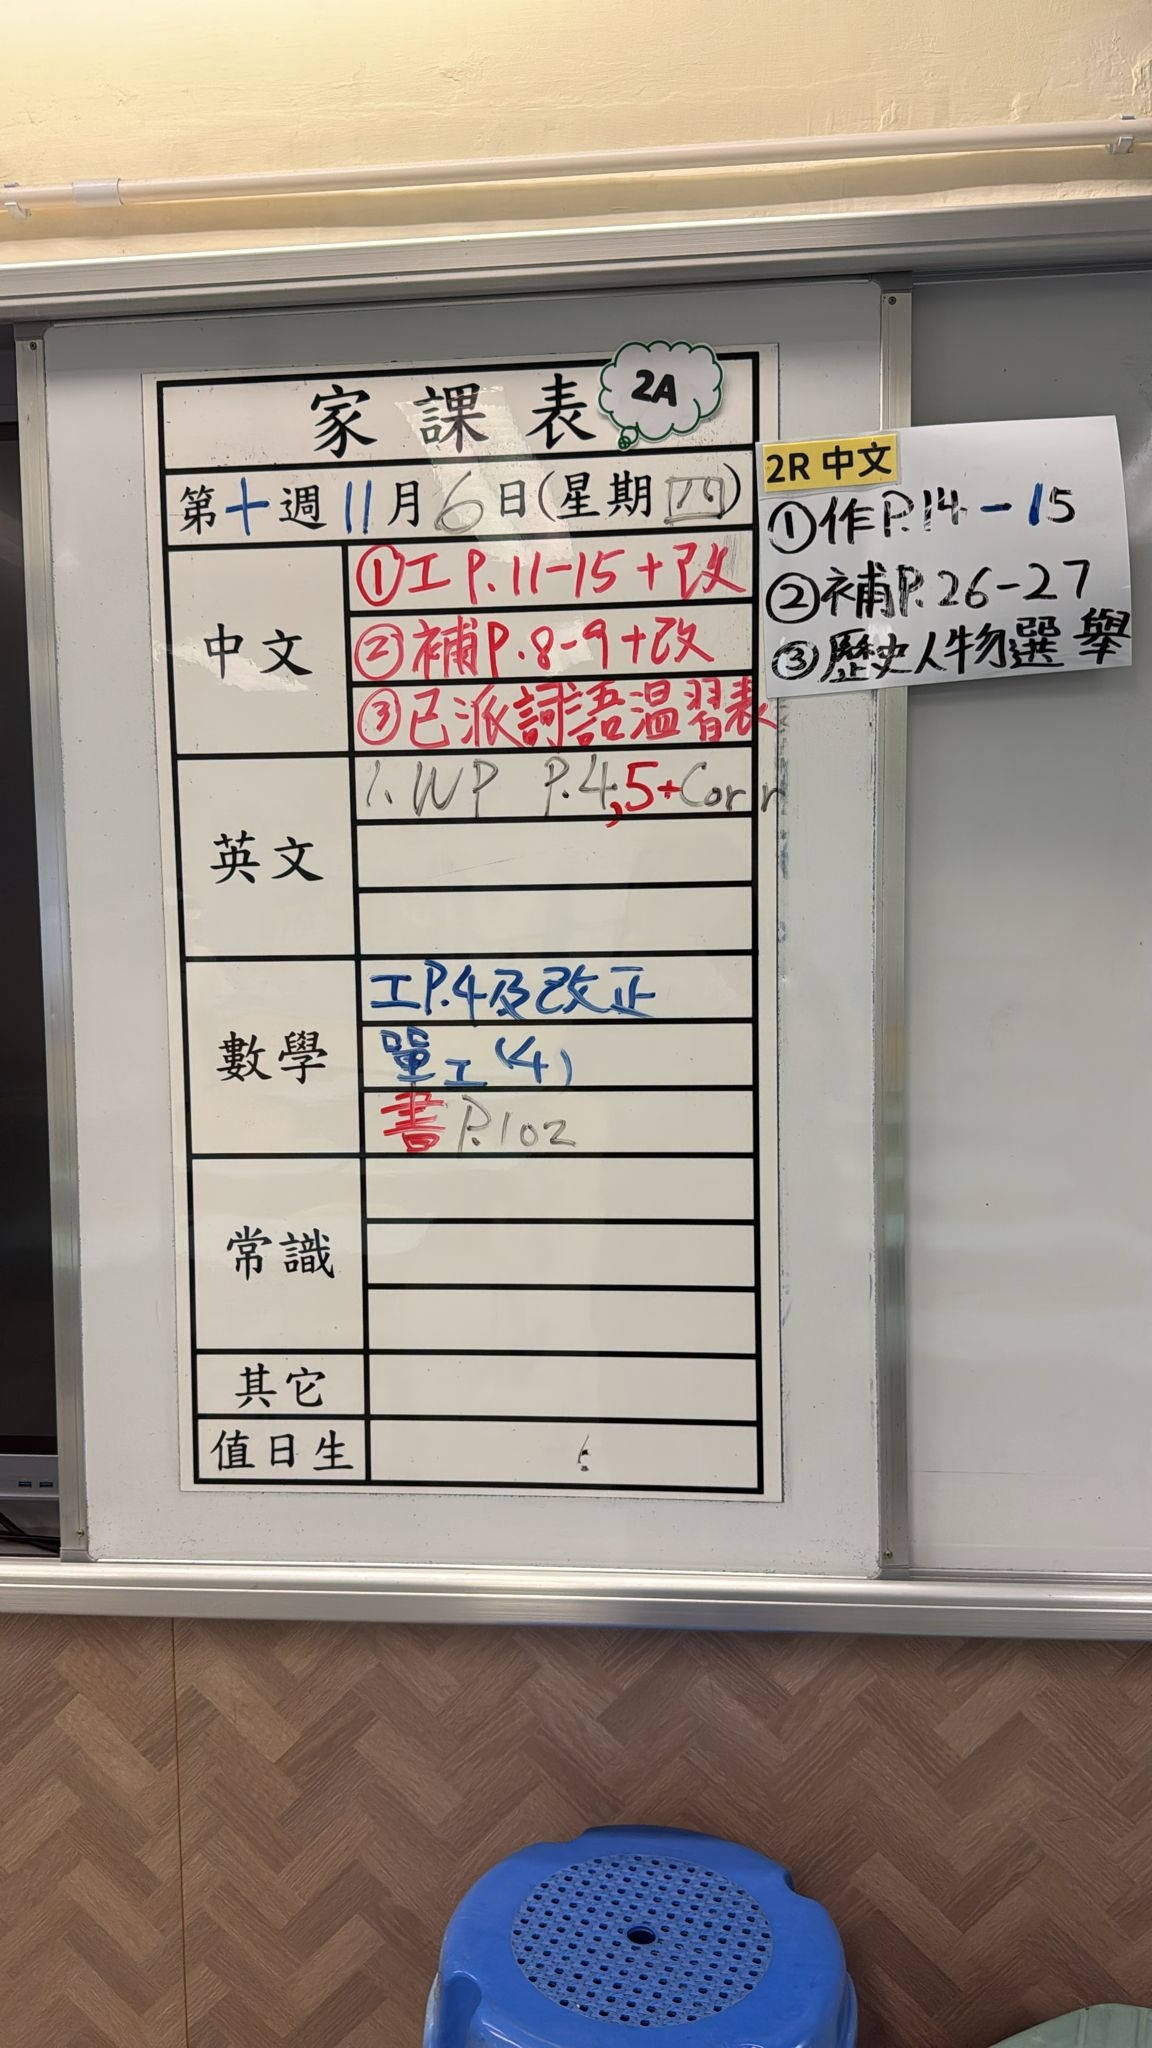 家課表 2A
第十週11月6日(星期四)
中文
①工P.11-15+改
②補P.8-9+改
③已派詞語温習表
英文
1. WP P.4,5+Corr
數學
工P.4及改正
單工(4)
書P.102
常識
其它
值日生
2R 中文
①作P.14-15
②補P.26-27
③歷史人物選舉